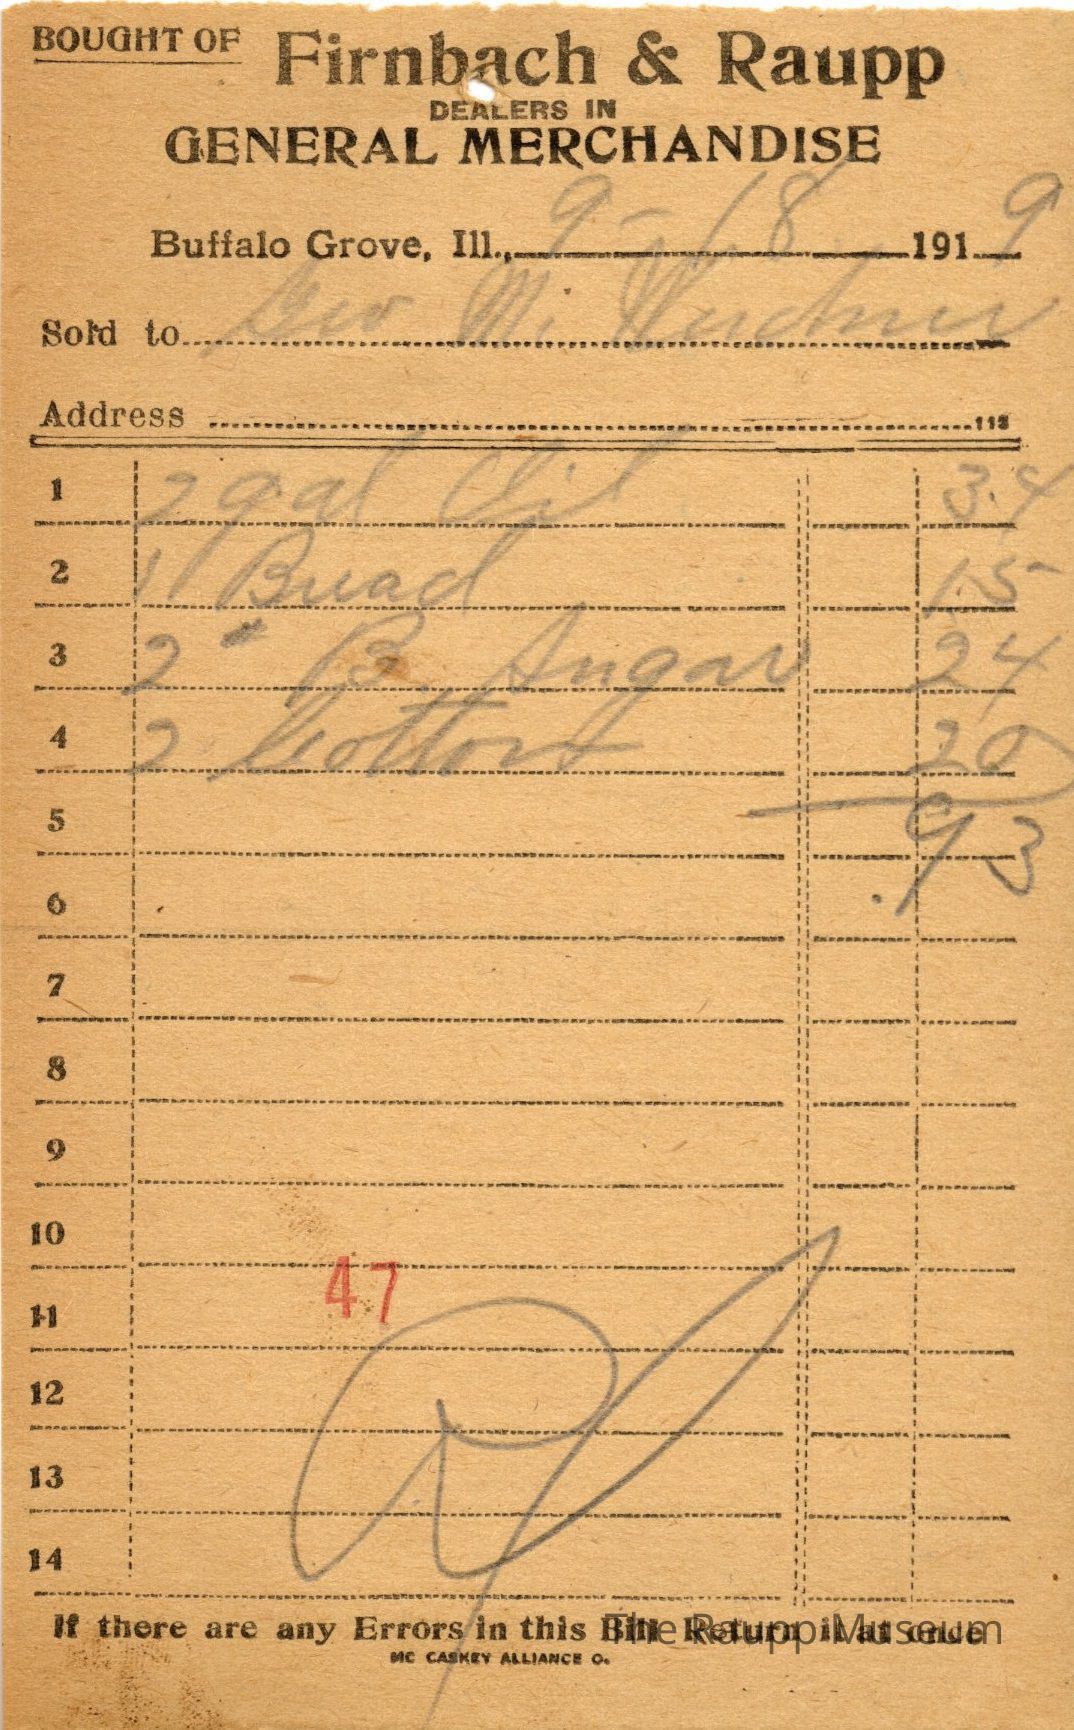 BOUGHT OF Firnbach & Raupp
DEALERS IN
GENERAL MERCHANDISE
Buffalo Grove, Ill., 9-18 1919
Sold to Geo M.
Address 113
1 2 gal Oil 34
2 1 Bread 15
3 2 " B. Sugar 24
4 2 Cotton 20
5 .93
6
7
8
9
10
47
11
12
13
14
If there are any Errors in this Bill Return it at once
The Raupp Museum
MC CASKEY ALLIANCE O.